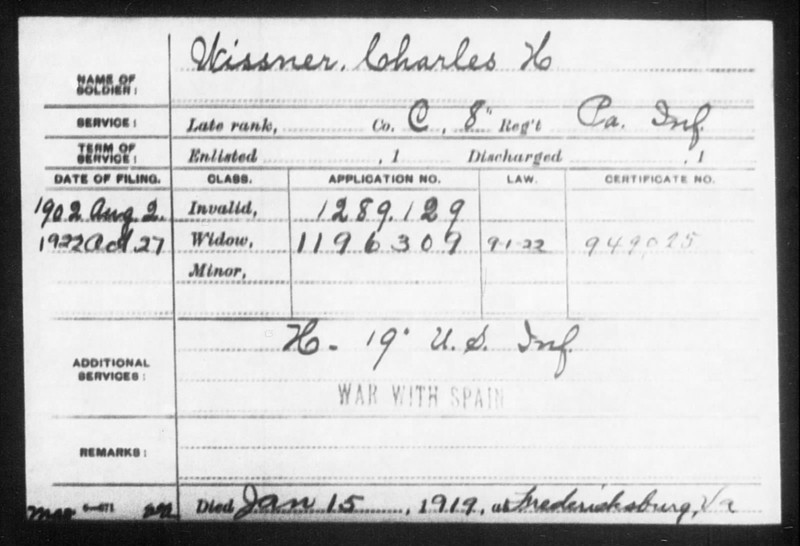 NAME OF SOLDIER: Wissner, Charles H
SERVICE: Late rank, Co. C, 8" Reg't Pa. Inf.
TERM OF SERVICE: Enlisted , 1 Discharged , 1
DATE OF FILING. CLASS. APPLICATION NO. LAW. CERTIFICATE NO.
1902 Aug. 2. Invalid, 1289.129
1922 Oct. 27 Widow, 1196309 9-1-22 949025
Minor,
ADDITIONAL SERVICES: H. 19" U.S. Inf.
WAR WITH SPAIN
REMARKS:
6-671 Died Jan 15, 1919, at Fredericksburg, Va